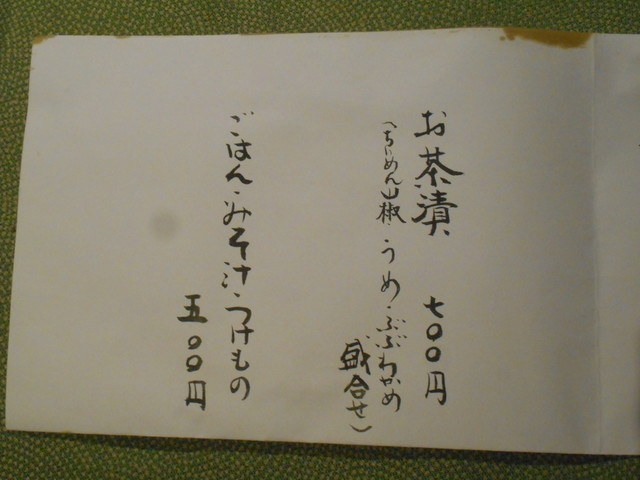 お茶漬 七〇〇円
(ちりめん山椒・うめ・ぶぶわかめ
盛合せ)
ごはん・みそ汁・つけもの
五〇〇円